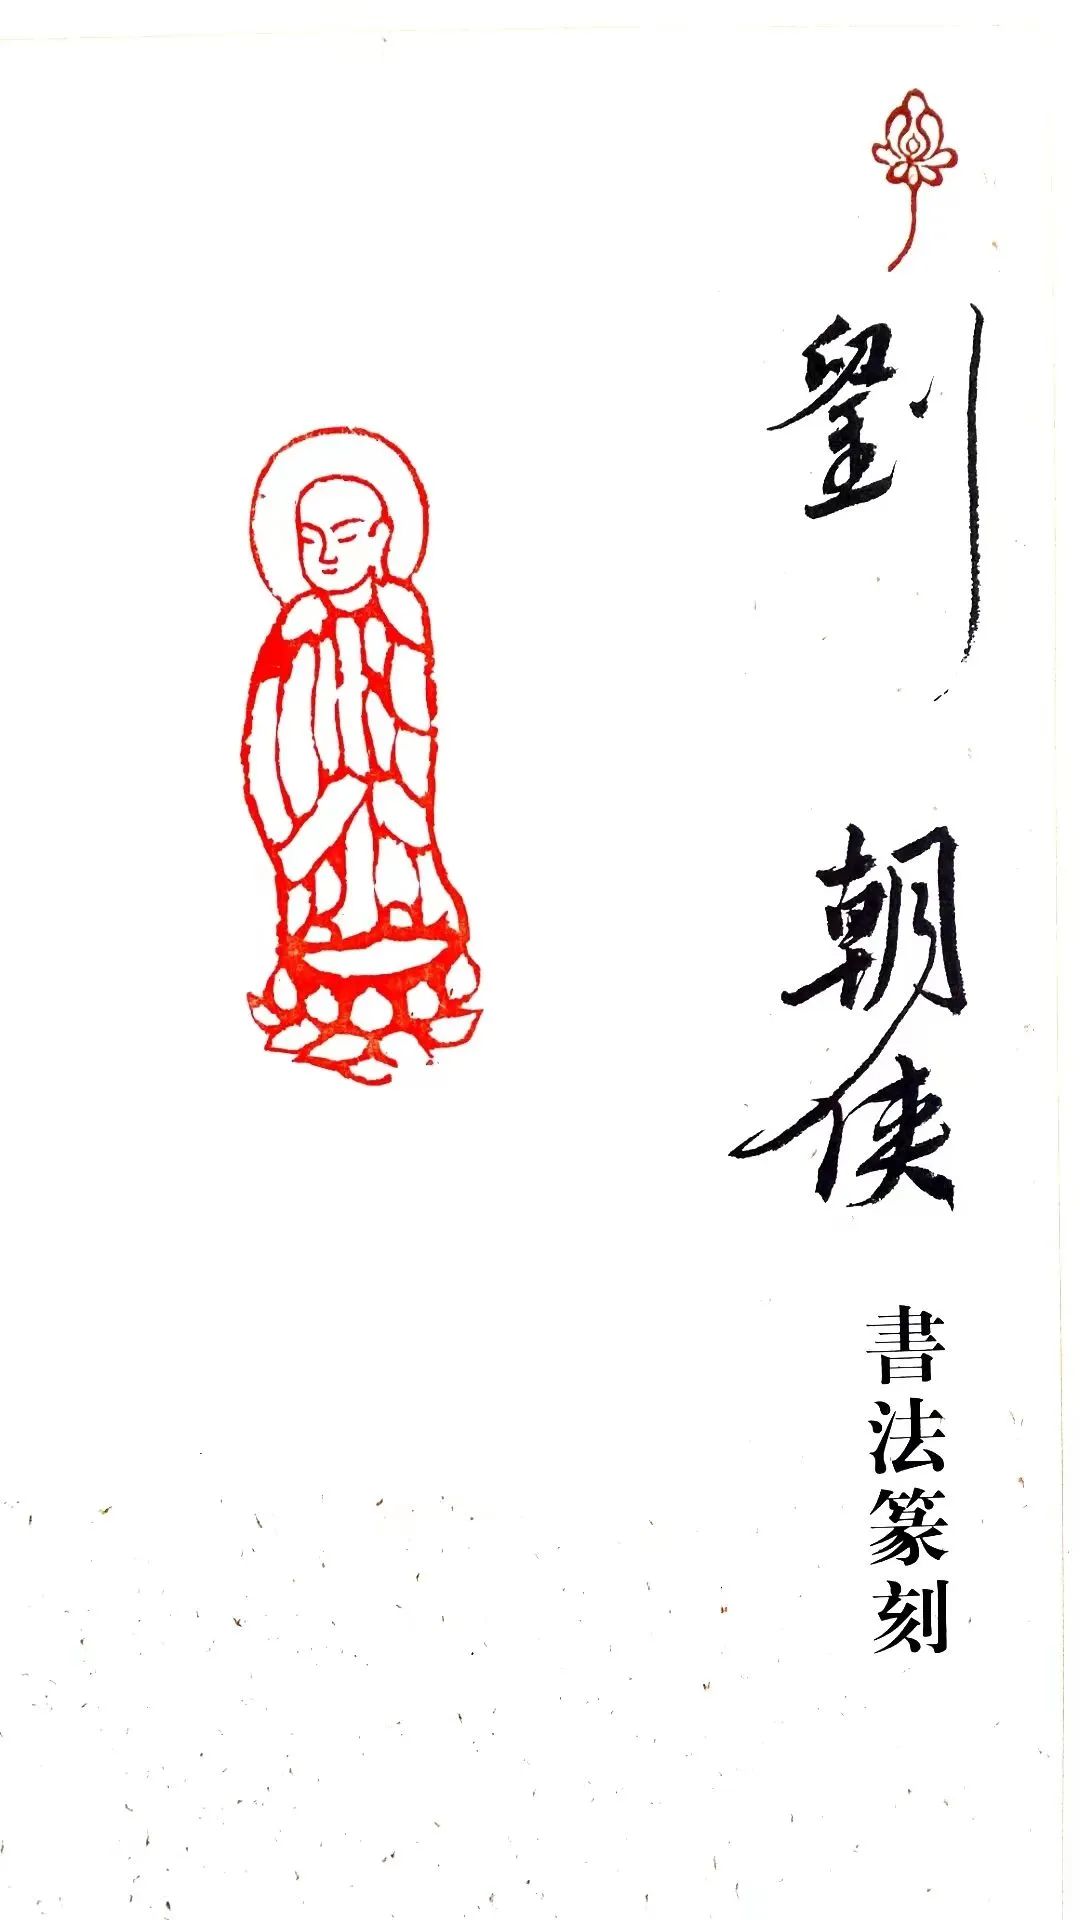 劉朝俠
書法篆刻